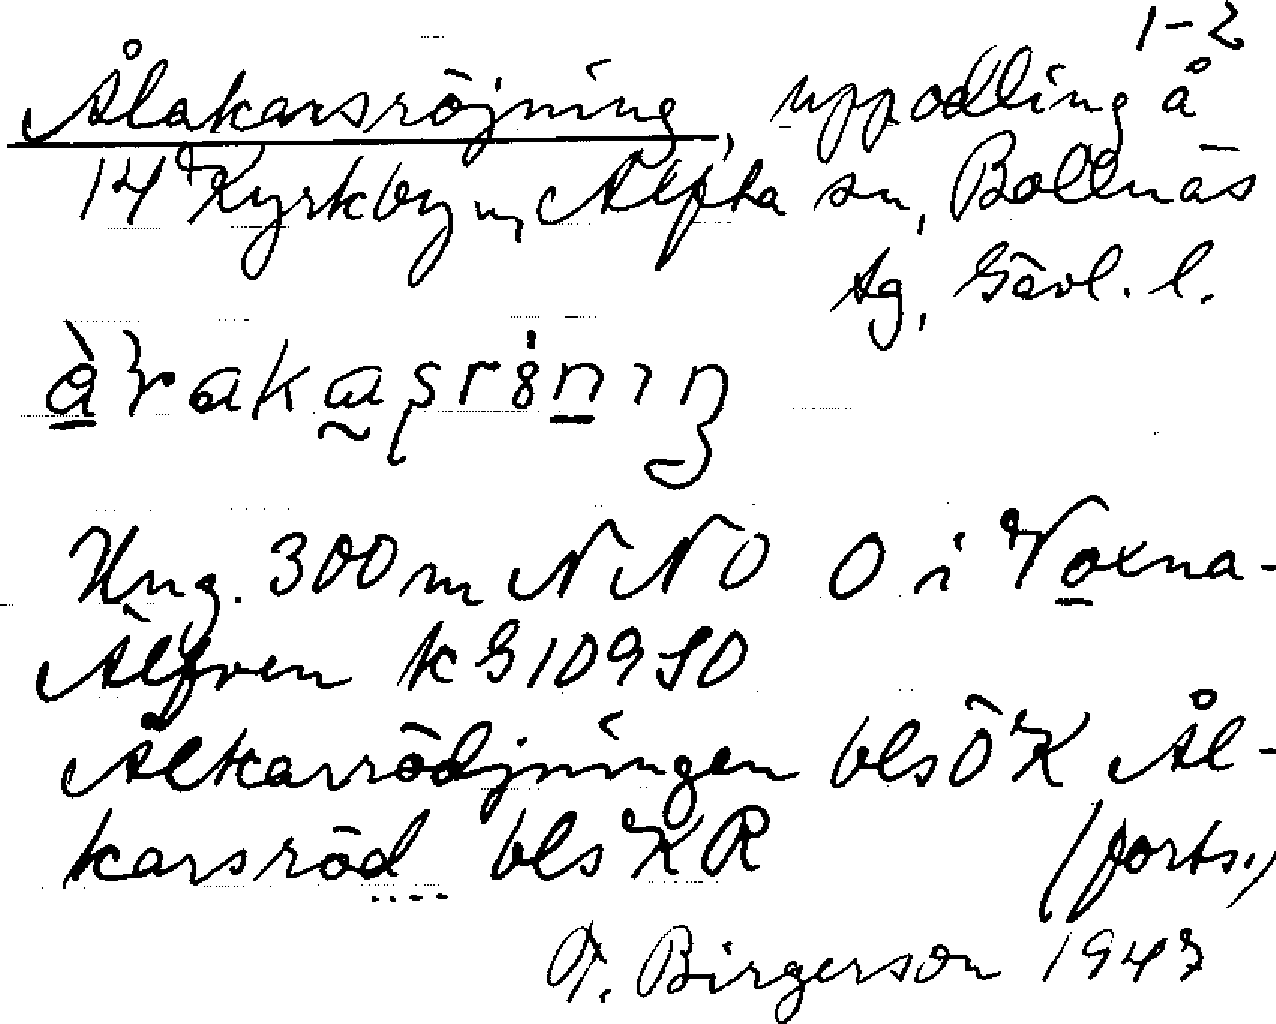 1-2
Ålakarsröjning, uppodling å
14 Kyrkbyn, Alfta sn, Bollnäs
tg, Gävl. l.
Ung. 300 m NNO O i Voxna-
Älfven kG 109 SO
Ålkarrödjningen bls ÖK Ål-
karsröd bls KR (forts.)
F. Birgerson 1947